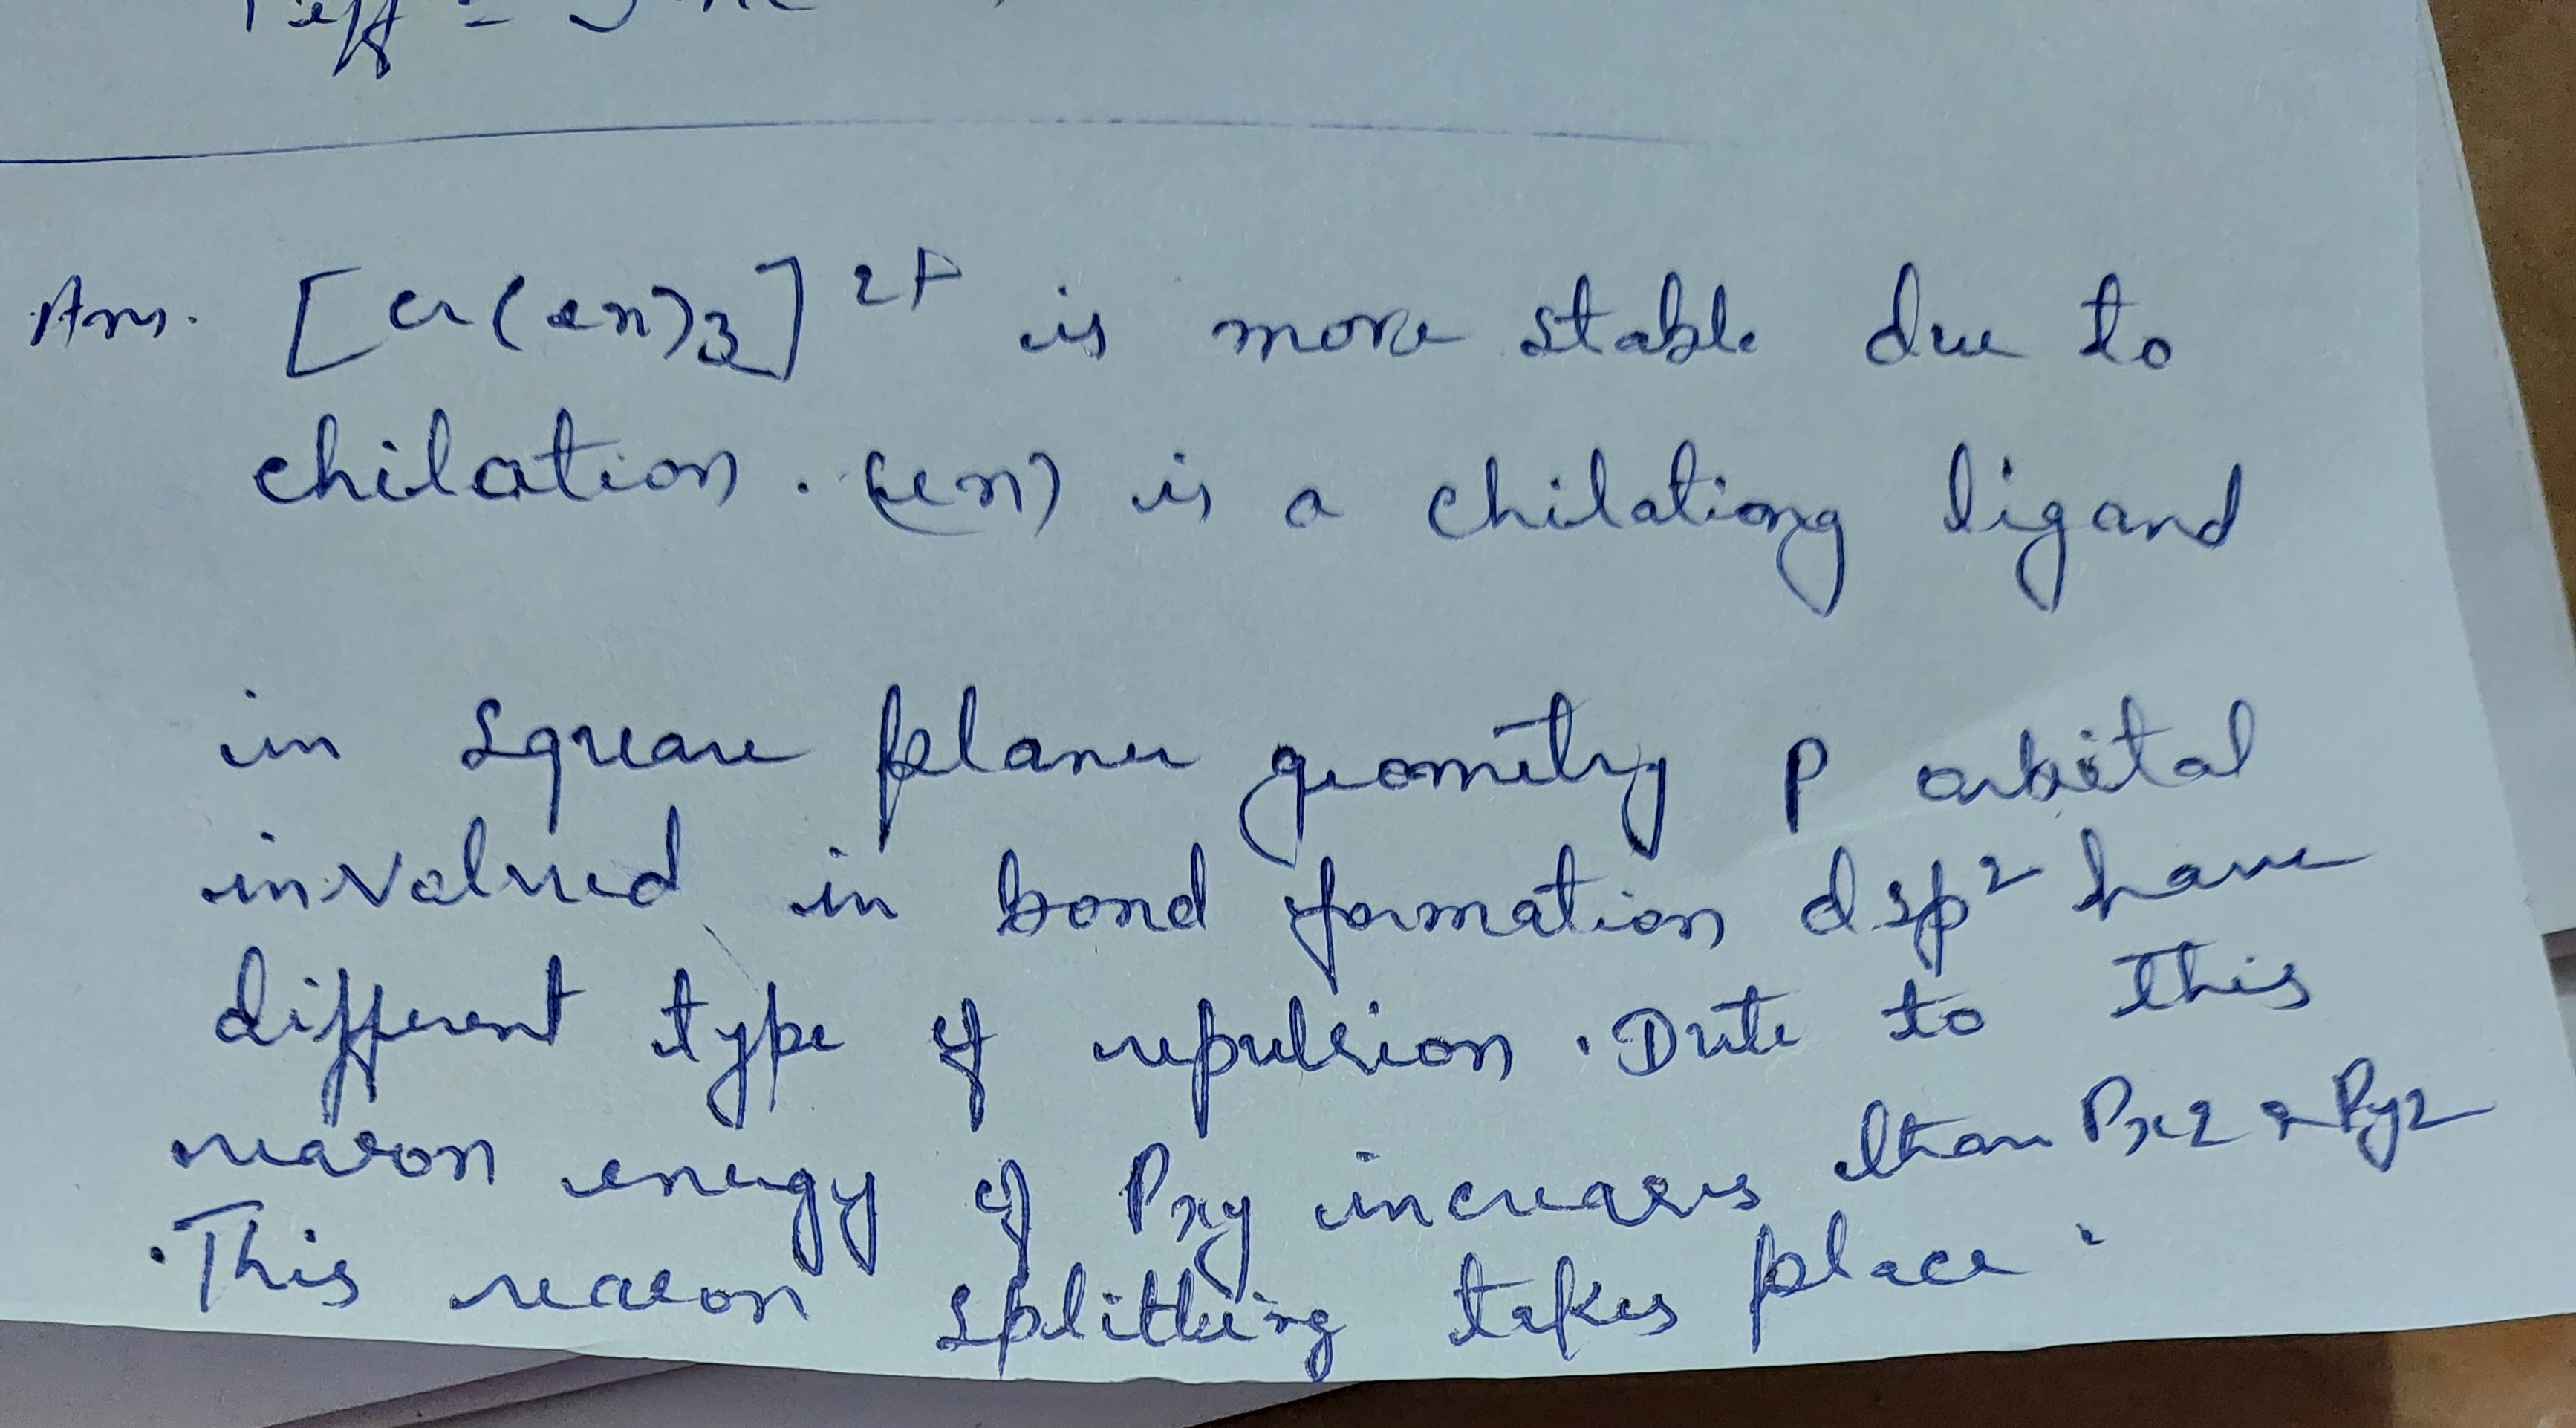 Ans. [Cr(en)3]2+ is more stable due to
chilation. (en) is a chilationg ligand
in square planer geometry p orbital
involved in bond formation dsp2 have
different type of repulsion. Dute to this
reason energy of Pxy increases than Px2 & Py2
. This reason splitting takes place.